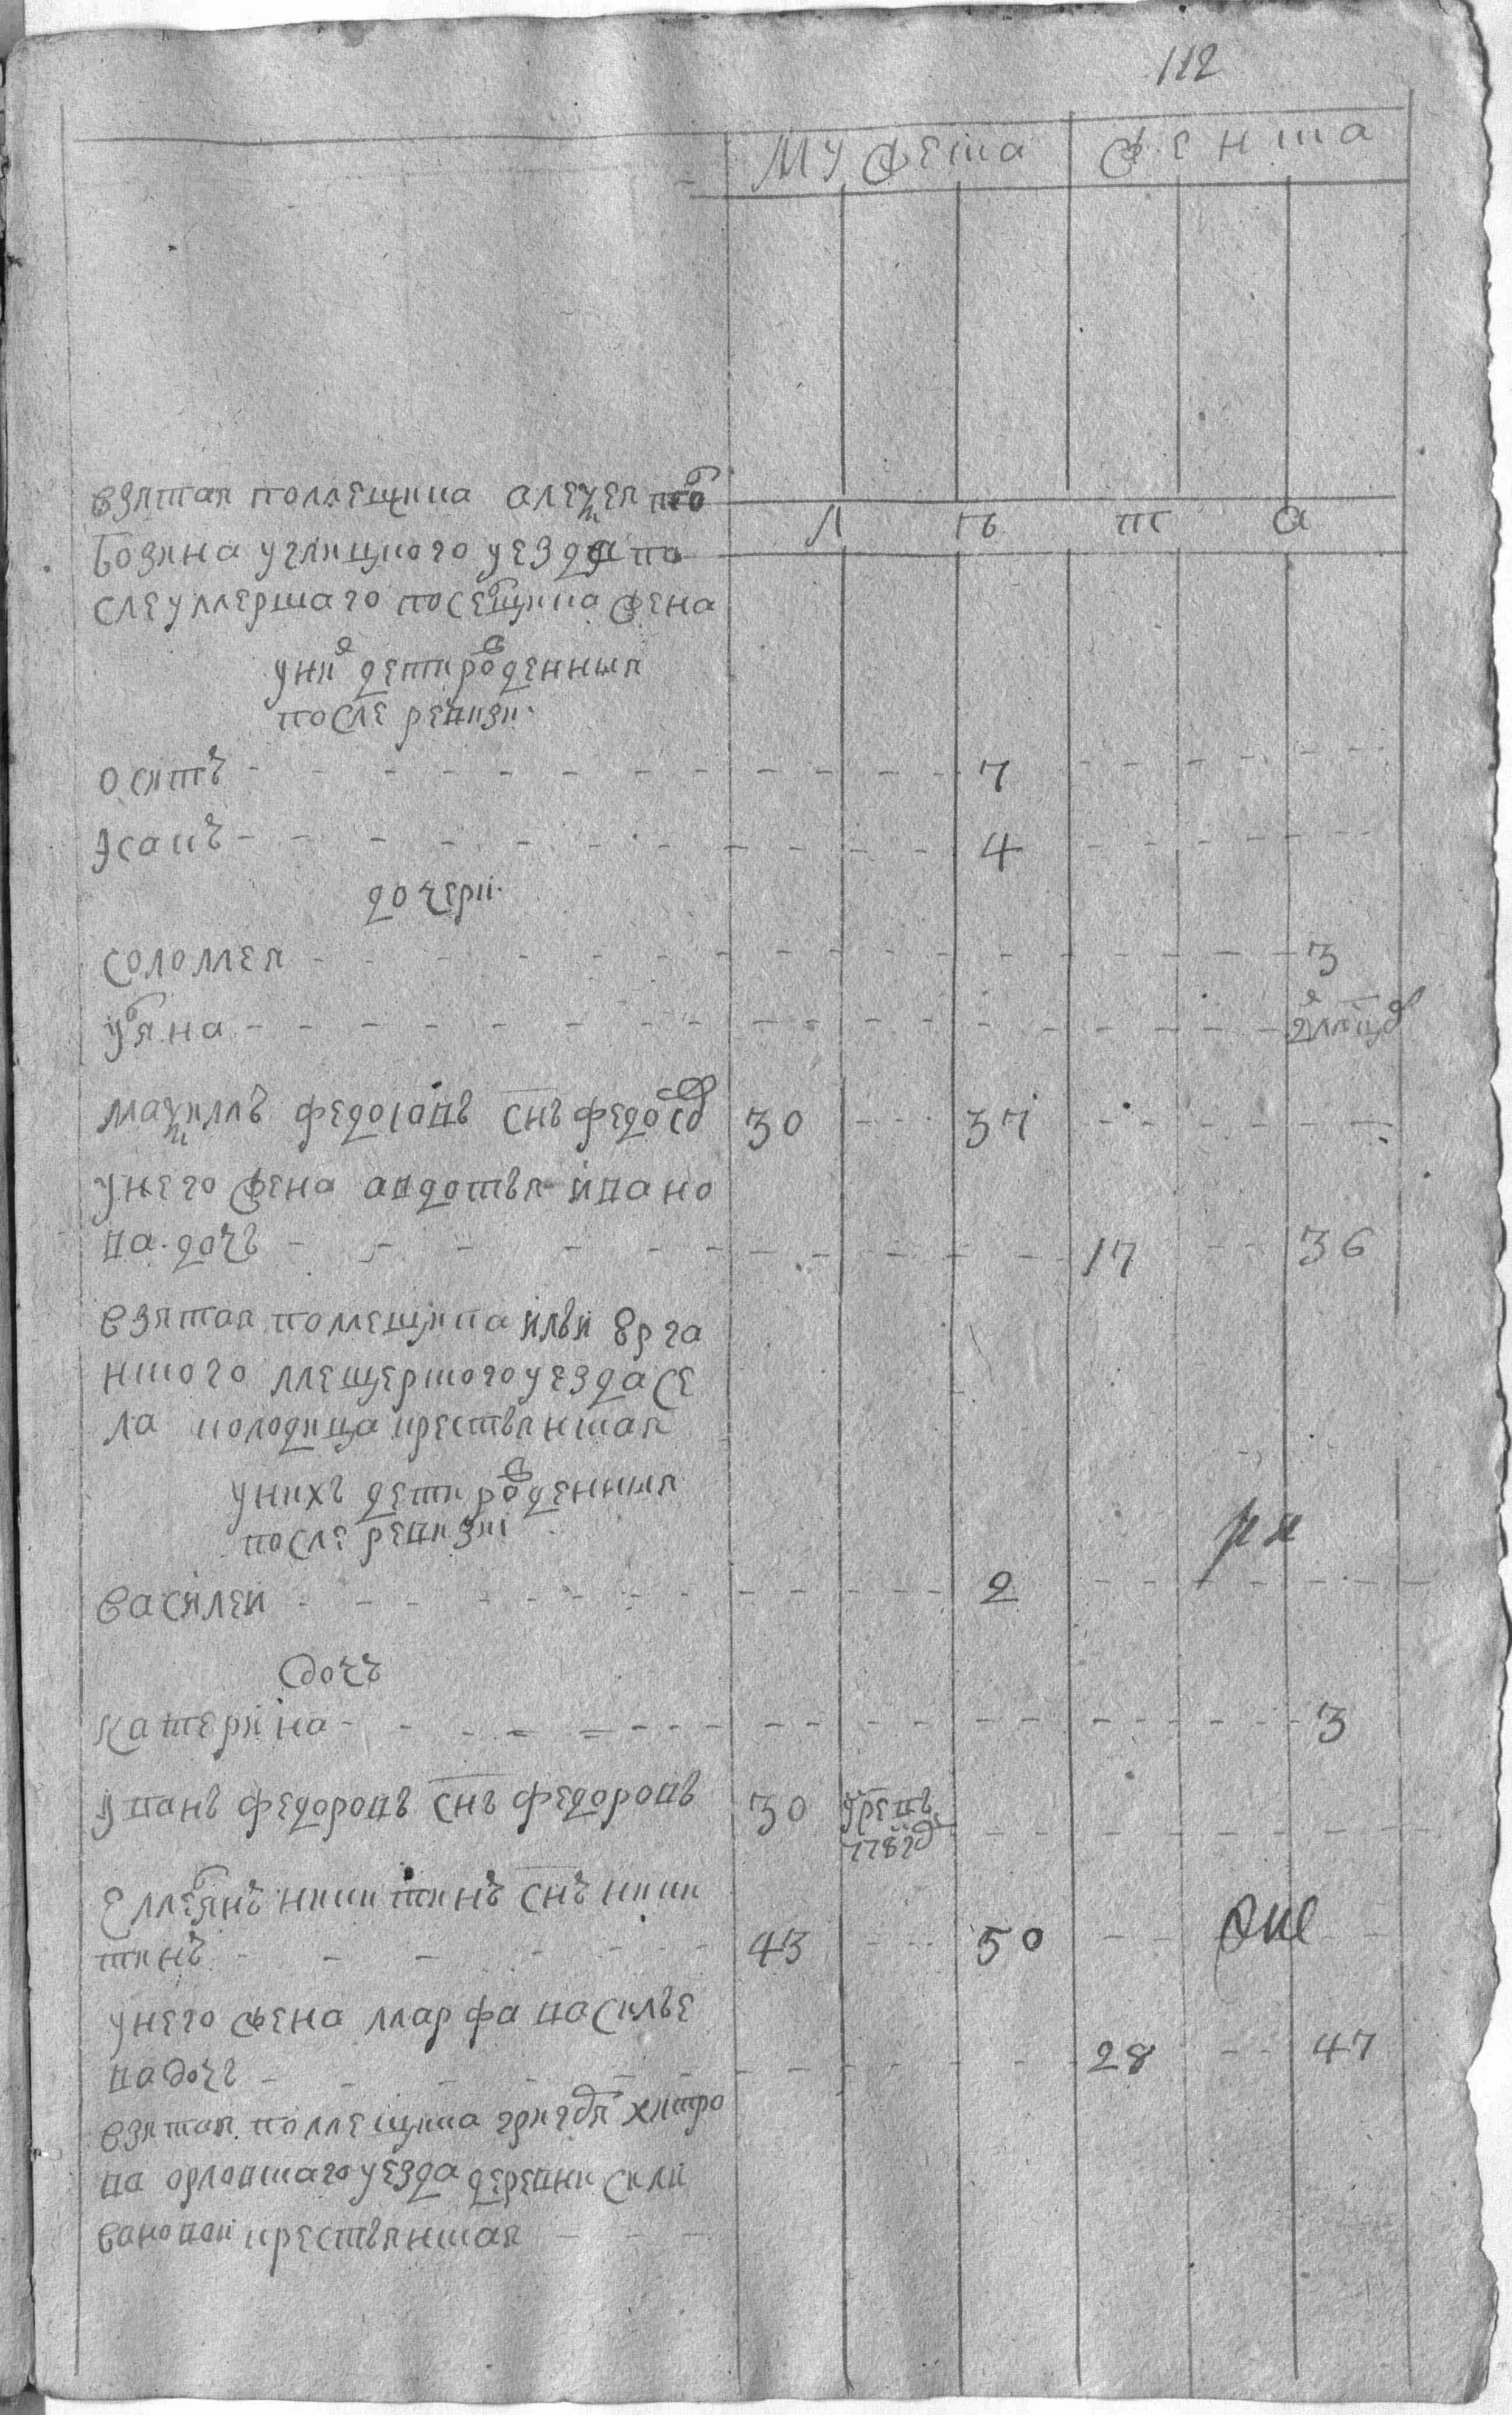 112
мужеска женска
взятая помещика алеѯея
лѣта
углицкого уезда по
сле умершаго посещика жена
у ния дети рожденныя
после ревизи
осипъ 7
исакъ 4
дочери
соломея 3
уляна
маѯимъ федоровъ снъ федоровъ 30 37
у него жена авдотья ивано
ва дочь 17 36
взятая помещика ильи
мещерского уезда се
ла колодица крестьянская
у нихъ дети рожденныя
после ревизиі
василей 2
дочь
катерина 3
иванъ федоровъ снъ федоровъ 30
емельянъ никитинъ снъ ники
тинъ 43 50
у него жена марфа василье
ва дочь 28 47
взятая помещика григорья хитро
ва орловскаго уезда деревни сели
вановой крестьянская